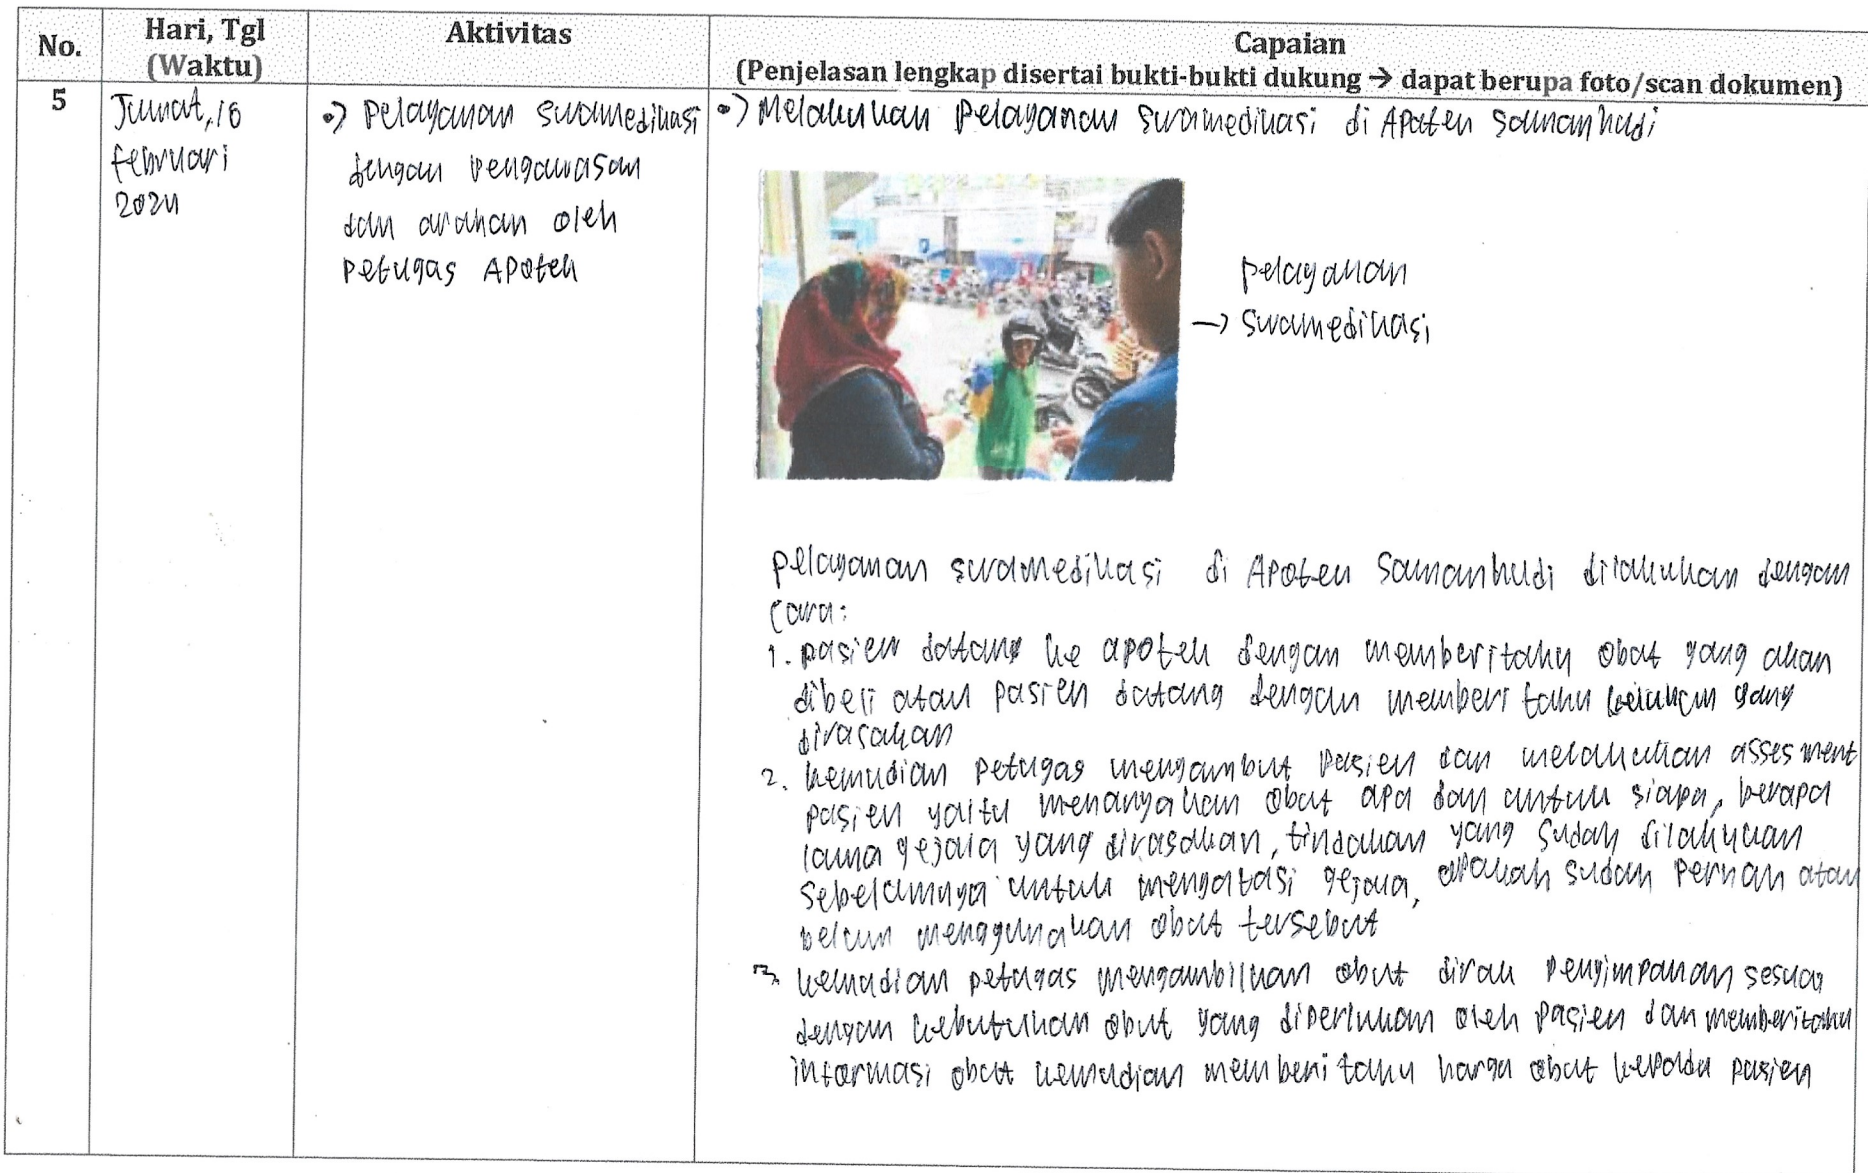 No.
Hari, Tgl
(Waktu)
Aktivitas
Capaian
(Penjelasan lengkap disertai bukti-bukti dukung → dapat berupa foto/scan dokumen)
5
Jumat, 16
februari
2024
•) Pelayanan swamedikasi
dengan pengawasan
dan arahan oleh
petugas Apotek
•) Melakukan pelayanan swamedikasi di Apotek Samanhudi
pelayanan
→ swamedikasi
pelayanan swamedikasi di Apotek Samanhudi dilakukan dengan
cara:
1. pasien datang ke apotek dengan memberitahu obat yang akan
dibeli atau pasien datang dengan memberi tahu keluhan yang
dirasakan
2. kemudian petugas menyambut pasien dan melakukan assesment
pasien yaitu menanyakan obat apa dan untuk siapa, berapa
lama gejala yang dirasakan, tindakan yang sudah dilakukan
sebelumnya untuk mengatasi gejala, apakah sudah pernah atau
belum menggunakan obat tersebut
3. kemudian petugas mengambilkan obat dirak penyimpanan sesuai
dengan kebutuhan obat yang diperlukan oleh pasien dan memberitahu
informasi obat kemudian memberi tahu harga obat kepada pasien